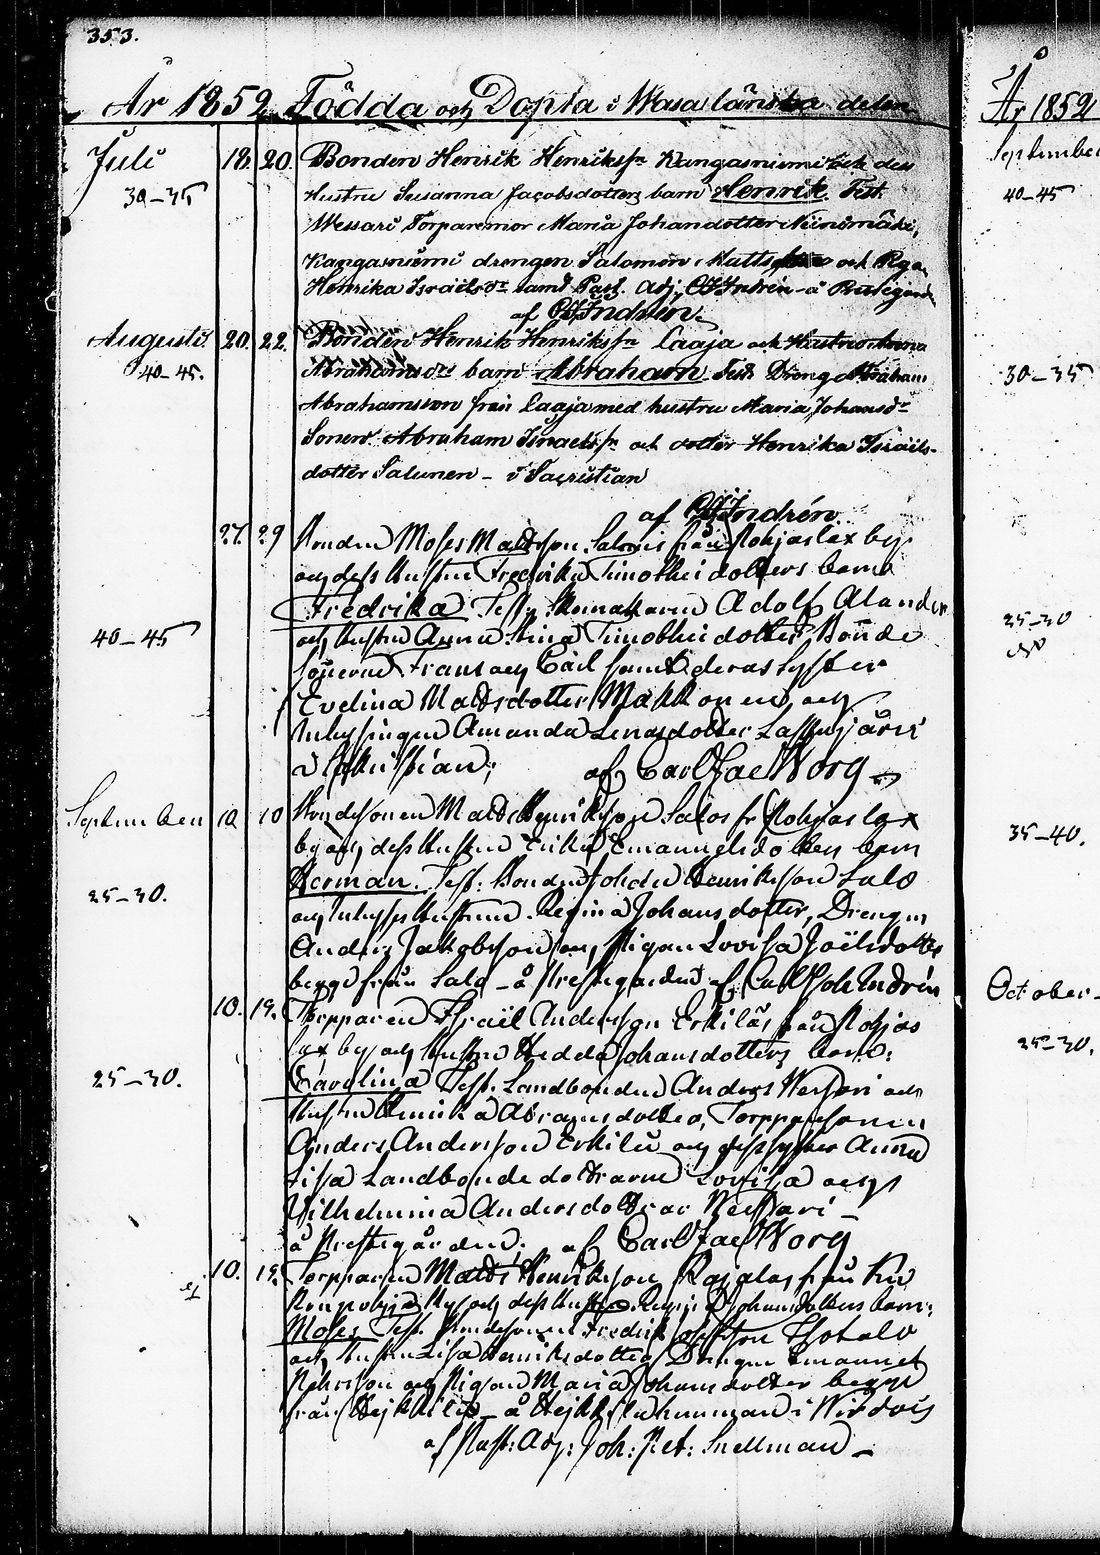 353.
År 1852 Födda och Döpta i Wasa länska delen
Juli 18. 20. Bonden Henrik Henrikss:n Kangasniemi och dess
30–35 Hustru Susanna Jacobsdotters barn Henrik. Test.
Wessari Torparemor Maria Johansdotter Niinimäki,
Kangasniemi drengen Salomon Matts och Piga
Henrika Israels dr samt Past. Adj. Indrén å Prestgård
af Indrén.
Augusti 20. 22. Bonden Henrik Henrikss:n Laaja och Hustru Anna
40–45. Abrahams dr barn Abraham Test. Dreng Abraham
Abrahamsson från Laaja med hustru Maria Johans dr
Sonen Abraham Israelss:n och dotter Henrika Israels-
dotter Salunen – i Sacristian
af Indrén
27. 29 Bonden Moses Mattsson Salonis från Kohjoslax by
och dess Hustru Fredrika Timothei dotters barn
Fredrika Test. Skomakaren Adolf Alander
40–45 och Hustru Anna Stina Timothei dotter, Bonde
sönerne Frans och Carl samt deras Syster
Evelina Mattsdotter Makkonen, och
Amanda dotter
i Sakristian; af Carl Jac Borg
September 10 10 Bondesonen Matts Henriksson Salo fr Kohjoslax
by och dess Hustru Erika Emanuelsdotters barn
25–30. Herman. Test: Bonden Johan Henriksson Salo
och Hustrun Regina Johansdotter, Drengen
Anders Jakobsson och Pigan Lovisa Joëlsdotter
begge från Salo – å Prestegården af Carl Joh Indrén
10. 19. Torpparen Israël Andersson Erkilä från Kohjos
lax by och Hustru Hedda Johansdotters barn:
25–30. Carolina Test. Landbonden Anders Wessari och
Hustru Henrika Abramsdotter, Torppare sonen
Anders Andersson Erkilä och dess syster Anna
Lisa Landbonde döttrarne Lovisa och
Vilhelmina Andersdöttrar Wessari –
å Prestegården; af Carl Jac Borg
10. 19. Torpparen Matts Henriksson från
by och dess Hustru Johansdotters barn:
Moses Test. Bondesonen Fredrik
och Hustru Lisa Henriksdotter Drengen Emanuel
och Pigan Maria Johansdotter begge
från Hejkkilä – å i Wirdois
af Past: Adj: Joh: Pet: Snellman –
År 1852
September
40–45
30–35
25–30
35–40.
October
25–30.